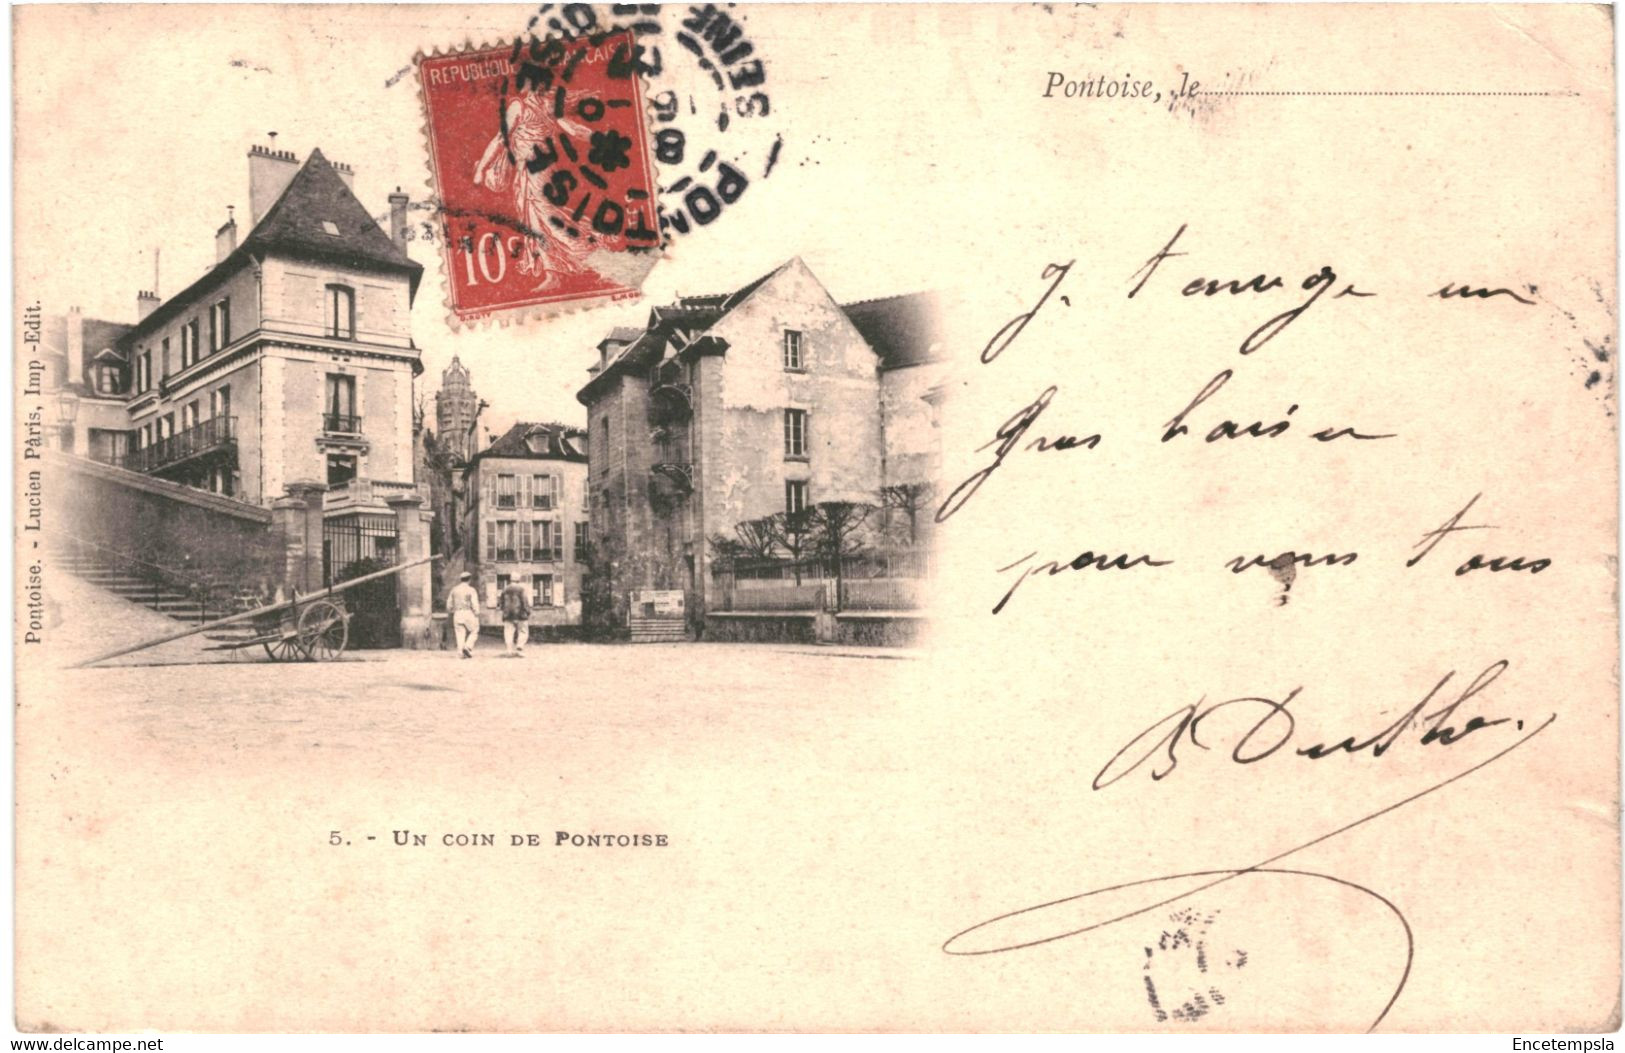 REPUBLIQUE FRANÇAISE
10 c
O.ROTY
PONTOISE
SEINE
OISE
08
Pontoise, le
Pontoise. - Lucien Pâris, Imp -Edit.
J. t'envoye un
Gros baiser
pour vous tous
5. - UN COIN DE PONTOISE
delcampe.net
Encetempsla